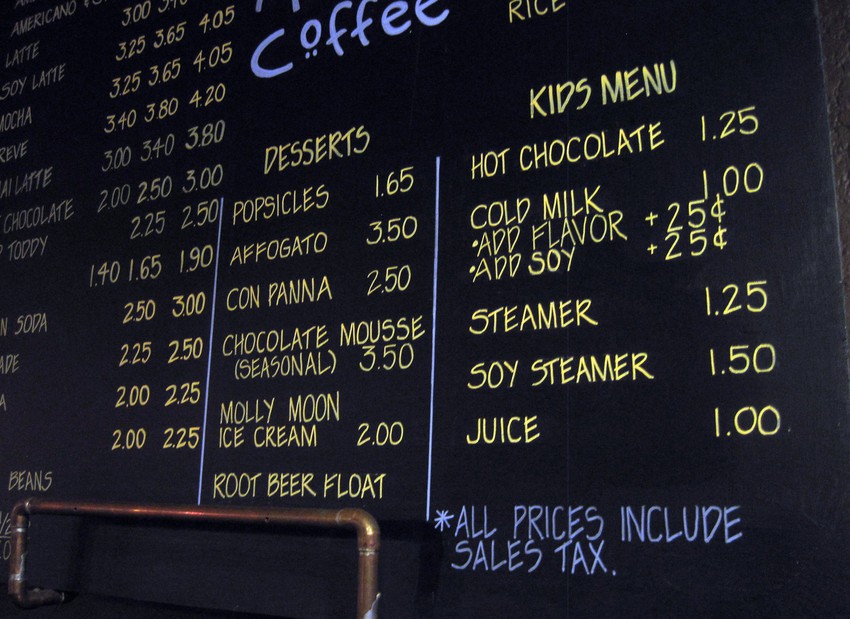 AMERICANO
3.00
LATTE 3.25 3.65 4.05
SOY LATTE 3.25 3.65 4.05
MOCHA 3.40 3.80 4.20
REVE 3.00 3.40 3.80
AI LATTE 2.00 2.50 3.00
CHOCOLATE 2.25 2.50
TODDY 1.40 1.65 1.90
2.50 3.00
N SODA 2.25 2.50
ADE 2.00 2.25
A 2.00 2.25
BEANS
Coffee
DESSERTS
POPSICLES 1.65
AFFOGATO 3.50
CON PANNA 2.50
CHOCOLATE MOUSSE
(SEASONAL) 3.50
MOLLY MOON
ICE CREAM 2.00
ROOT BEER FLOAT
RICE
KIDS MENU
HOT CHOCOLATE 1.25
COLD MILK 1.00
•ADD FLAVOR +25¢
•ADD SOY +25¢
STEAMER 1.25
SOY STEAMER 1.50
JUICE 1.00
*ALL PRICES INCLUDE
SALES TAX.